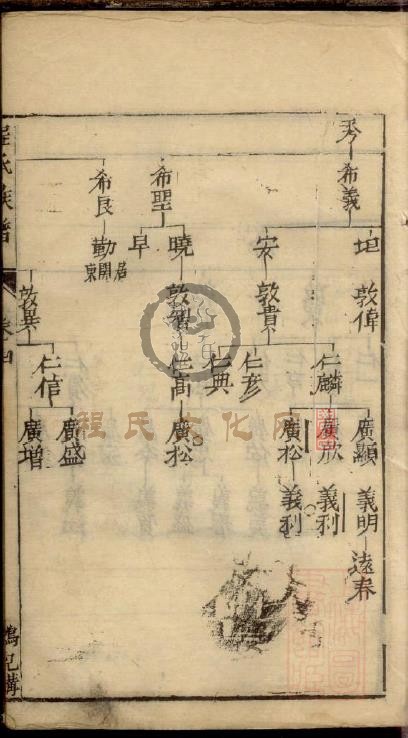 秀
希義
希聖
希良
坦
安
曉
早
勤
居開東
敦偉
敦貴
敦智
敦異
仁麟
仁彥
仁典
仁高
仁信
廣顯
廣松
廣松
廣盛
廣增
義明
義利
義利
遠春
程氏族譜
卷四
程氏文化网